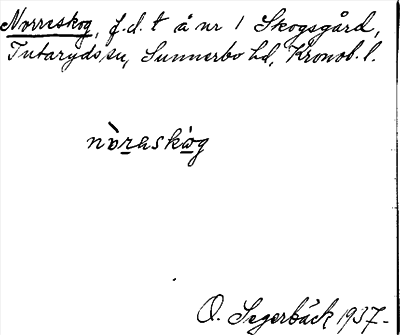 Norreskog, f.d. t å nr 1 Skogsgård,
Tutaryds sn, Sunnerbo hd, Kronob. l.
nòraskòg
O. Segerbäck 1937-